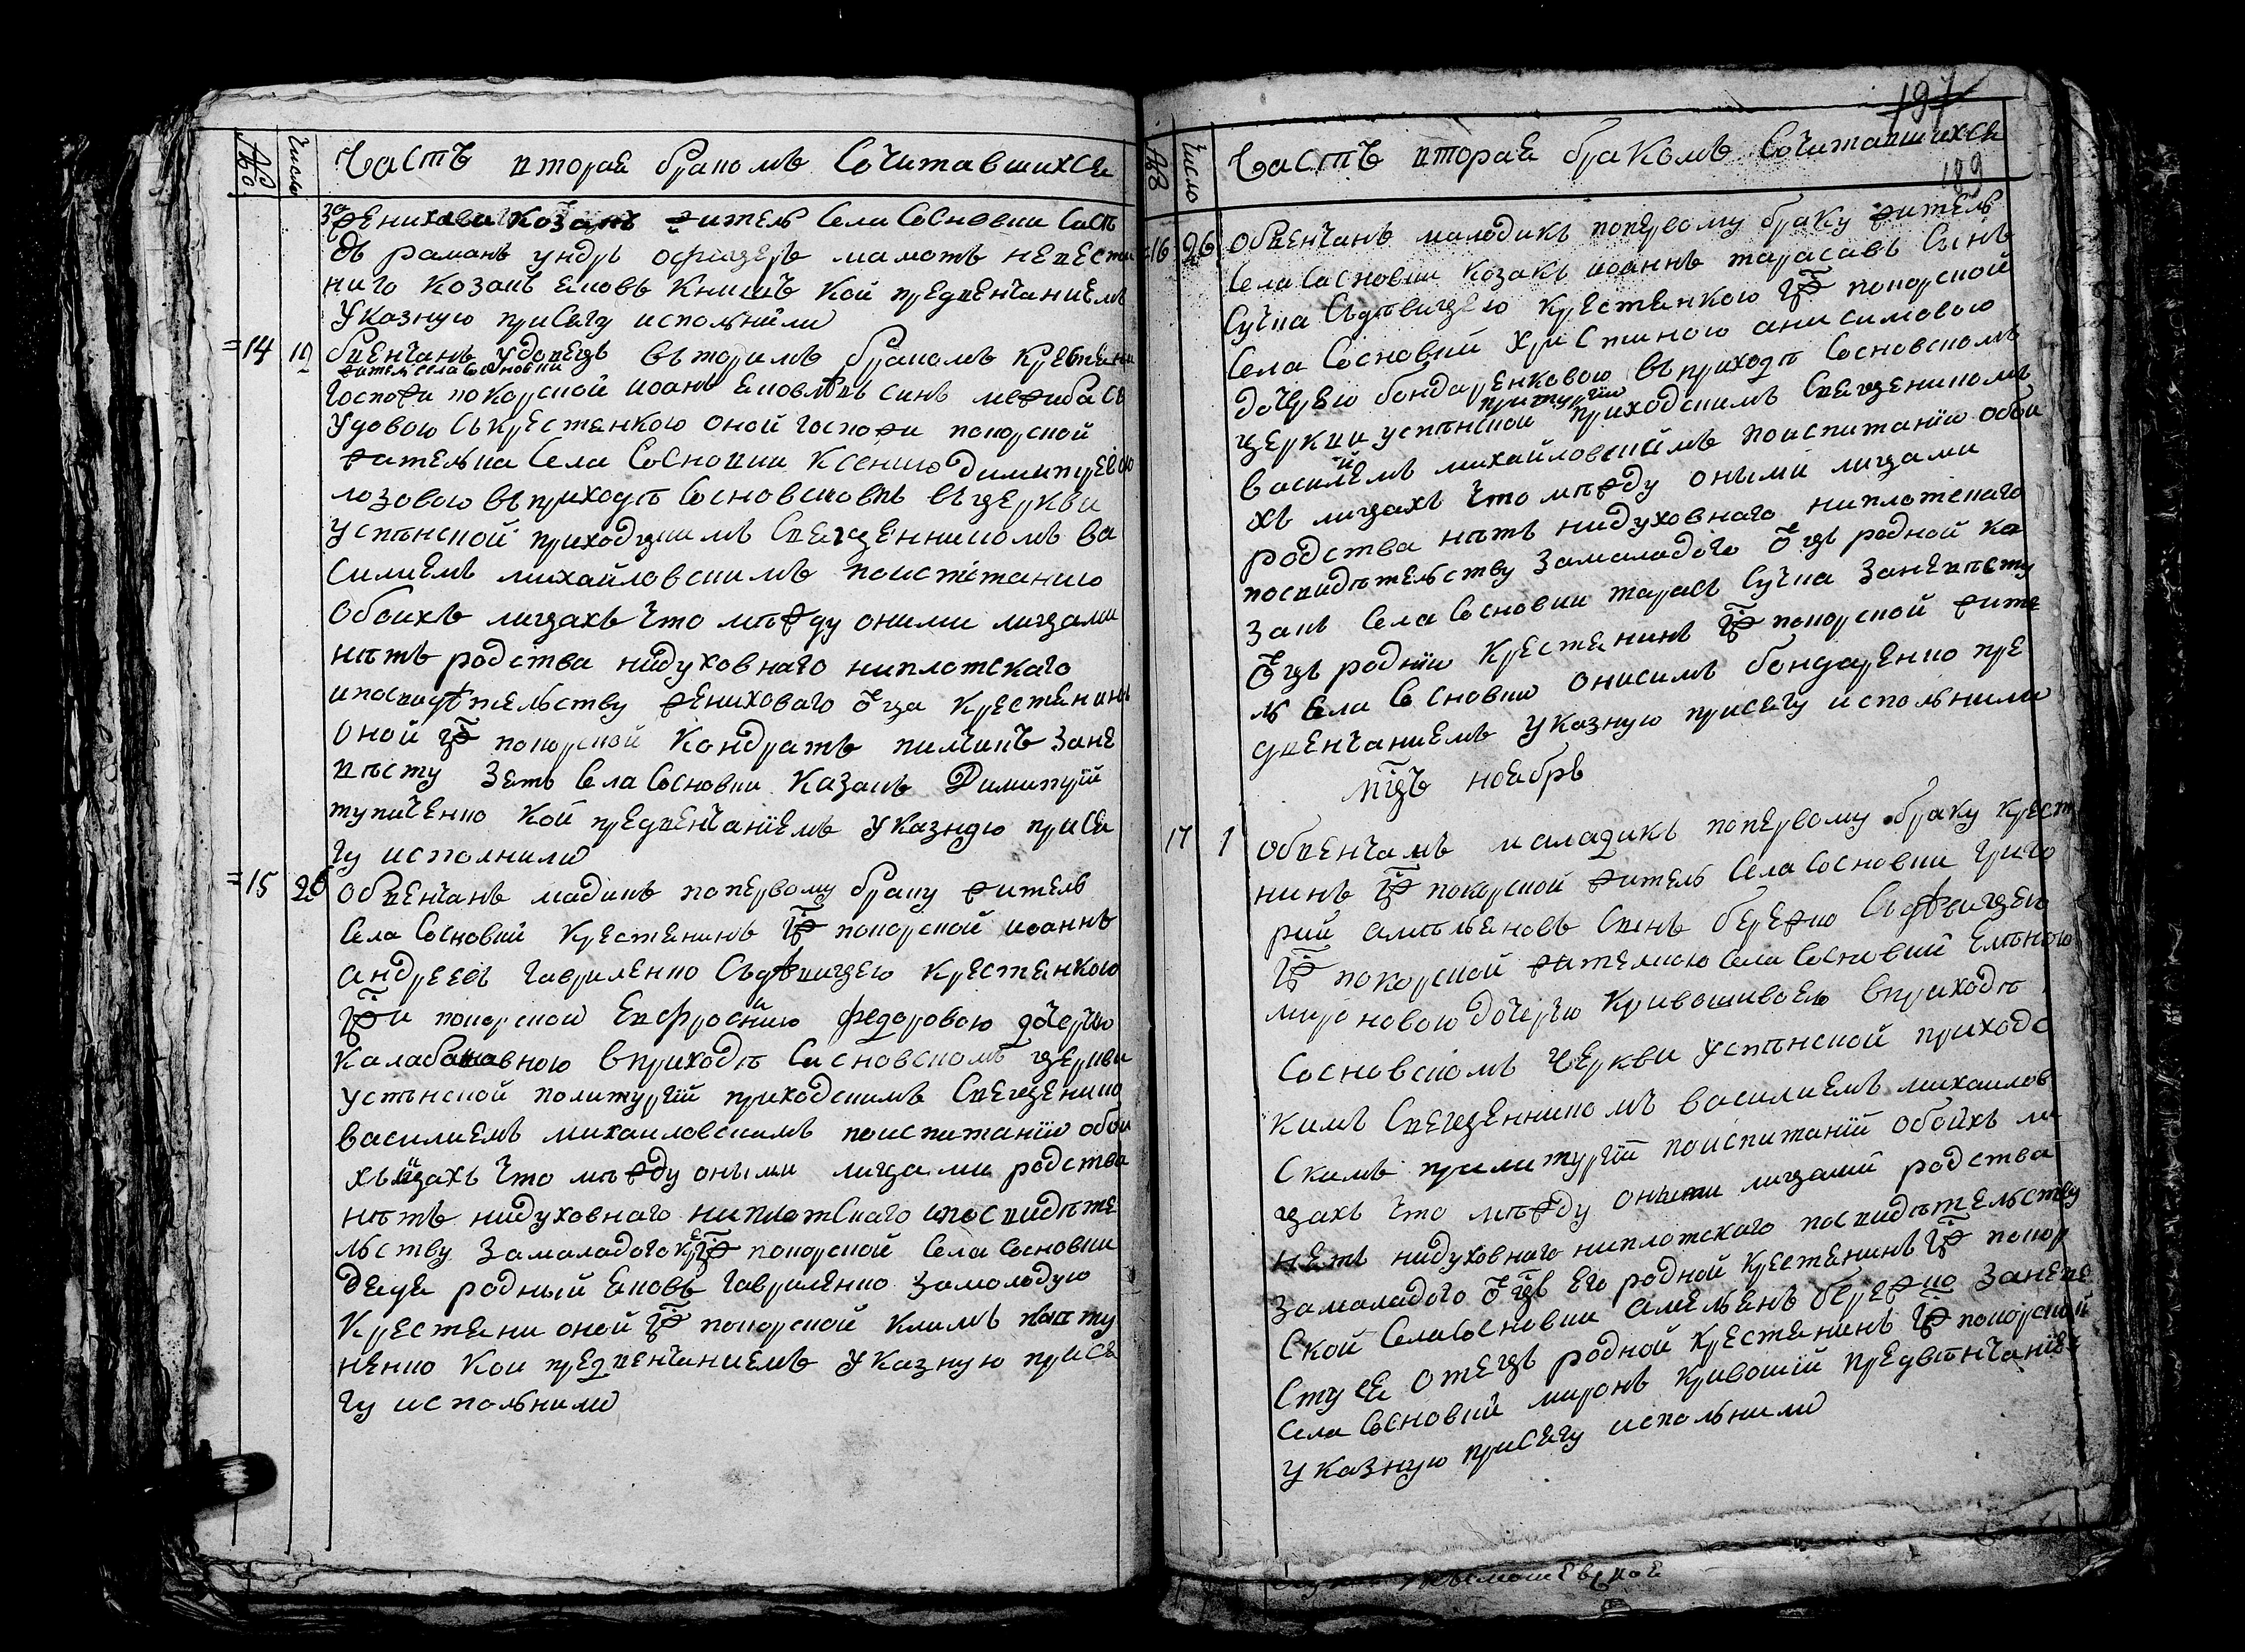 №
число
Часть вторая бракомъ сочитавшихся
за женихова козакъ житель села Сосновки сосѣ
дъ романъ ундръ офицеръ мамотъ невести
ниго козакъ яковъ книшъ кои предвенчаниемъ
указную присягу исполнили
14 19 обвенчанъ удовецъ въторимъ бракомъ крестяни
житель села Сосновки
госпожи покорской иоанъ яковлѣвъ синъ
удовою съ крестянкою оной госпожи покорской
жителка села Сосновки ксению димитриевою
лозовою въ приходѣ Сосновсковъ въ церкви
успѣнской приходцкимъ священникомъ ва
силиемъ михайловскимъ поиспитанию
обоихъ лицахъ что мѣжду оними лицами
нѣтъ родства нидуховнаго ниплотскаго
и посвидѣтельству жениховаго отца крестянинъ
оной гжі покорской кондратъ пилчикъ зане
вѣсту зять села Сосновки казакъ Димитрїй
тупиченко кои предвенчанїемъ указную прися
гу исполнили
15 26 обвенчанъ мадикъ попервому браку житель
села Сосновки крестянинъ гжі покорской иоаннъ
андреевъ гавриленко съ дѣвицею крестянкою
гжи покорской Евфросинию федоровою дочерью
калабаткавною вприходѣ Сосновскомъ церкви
успѣнской политургїй приходскимъ священико
василиемъ михаиловскимъ поиспитанїю обои
хъ лицахъ что мѣжду оными лицами родства
нѣтъ нидуховнаго ниплотскаго ипосвидѣте
льству замаладого кр гжі покорской села Сосновки
дядя родный яковъ гавриленко замолодую
крестяни оной гжі покорской климъ
ненко кои предвенчаниемъ указную прися
гу исполнили
197
199
№
число
Часть вторая бракомъ сочитавшихся
16 26 обвенчанъ малодикъ попервому браку житель
села Сосновки козакъ иоаннъ тарасавъ синъ
сучка съдѣвицею крестянкою гжі покорской
села Сосновки христиною анисимовою
дочерью бондаренковою въ приходѣ Сосновскомъ
церкви успѣнской прилитургїи приходскимъ священикомъ
василиемъ михайловскимъ поиспитанїю обои
хъ лицахъ что мѣжду оными лицами
родства нѣтъ нидуховнаго ниплотскаго
посвидѣтельству замаладого отцъ родной ка
закъ села Сосновки тарасъ сучка заневѣсту
отцъ роднїи крестянинъ гжі покорской жите
ль села Сосновки онисимъ бондаренко пре
двенчаниемъ указную присягу исполнили
мцъ ноябрь
17 1 обвенчанъ маладикъ попервому браку крестя
нинъ гжі покорской житель села Сосновки григо
рий амѣльяновъ синъ бережко съдѣвицею
гжі покорской жителкою села Сосновки Елѣною
мироновою дочерью кривошиваею вприходѣ
Сосновскомъ церкви успѣнской приходс
кимъ священникомъ василиемъ михаилов
скимъ прилитургїй поиспитанїй обоихъ ли
цахъ что мѣжду оными лицами родства
нетъ нидуховнаго ниплотскаго посвидѣтельству
замаладого отцъ его родной крестянинъ гжі покор
ской села Сосновки амельянъ бережко заневе
сту ея отецъ родной крестянинъ гжі покорской
села Сосновки миронъ кривошїй предвѣнчаниям
указную присягу исполнили